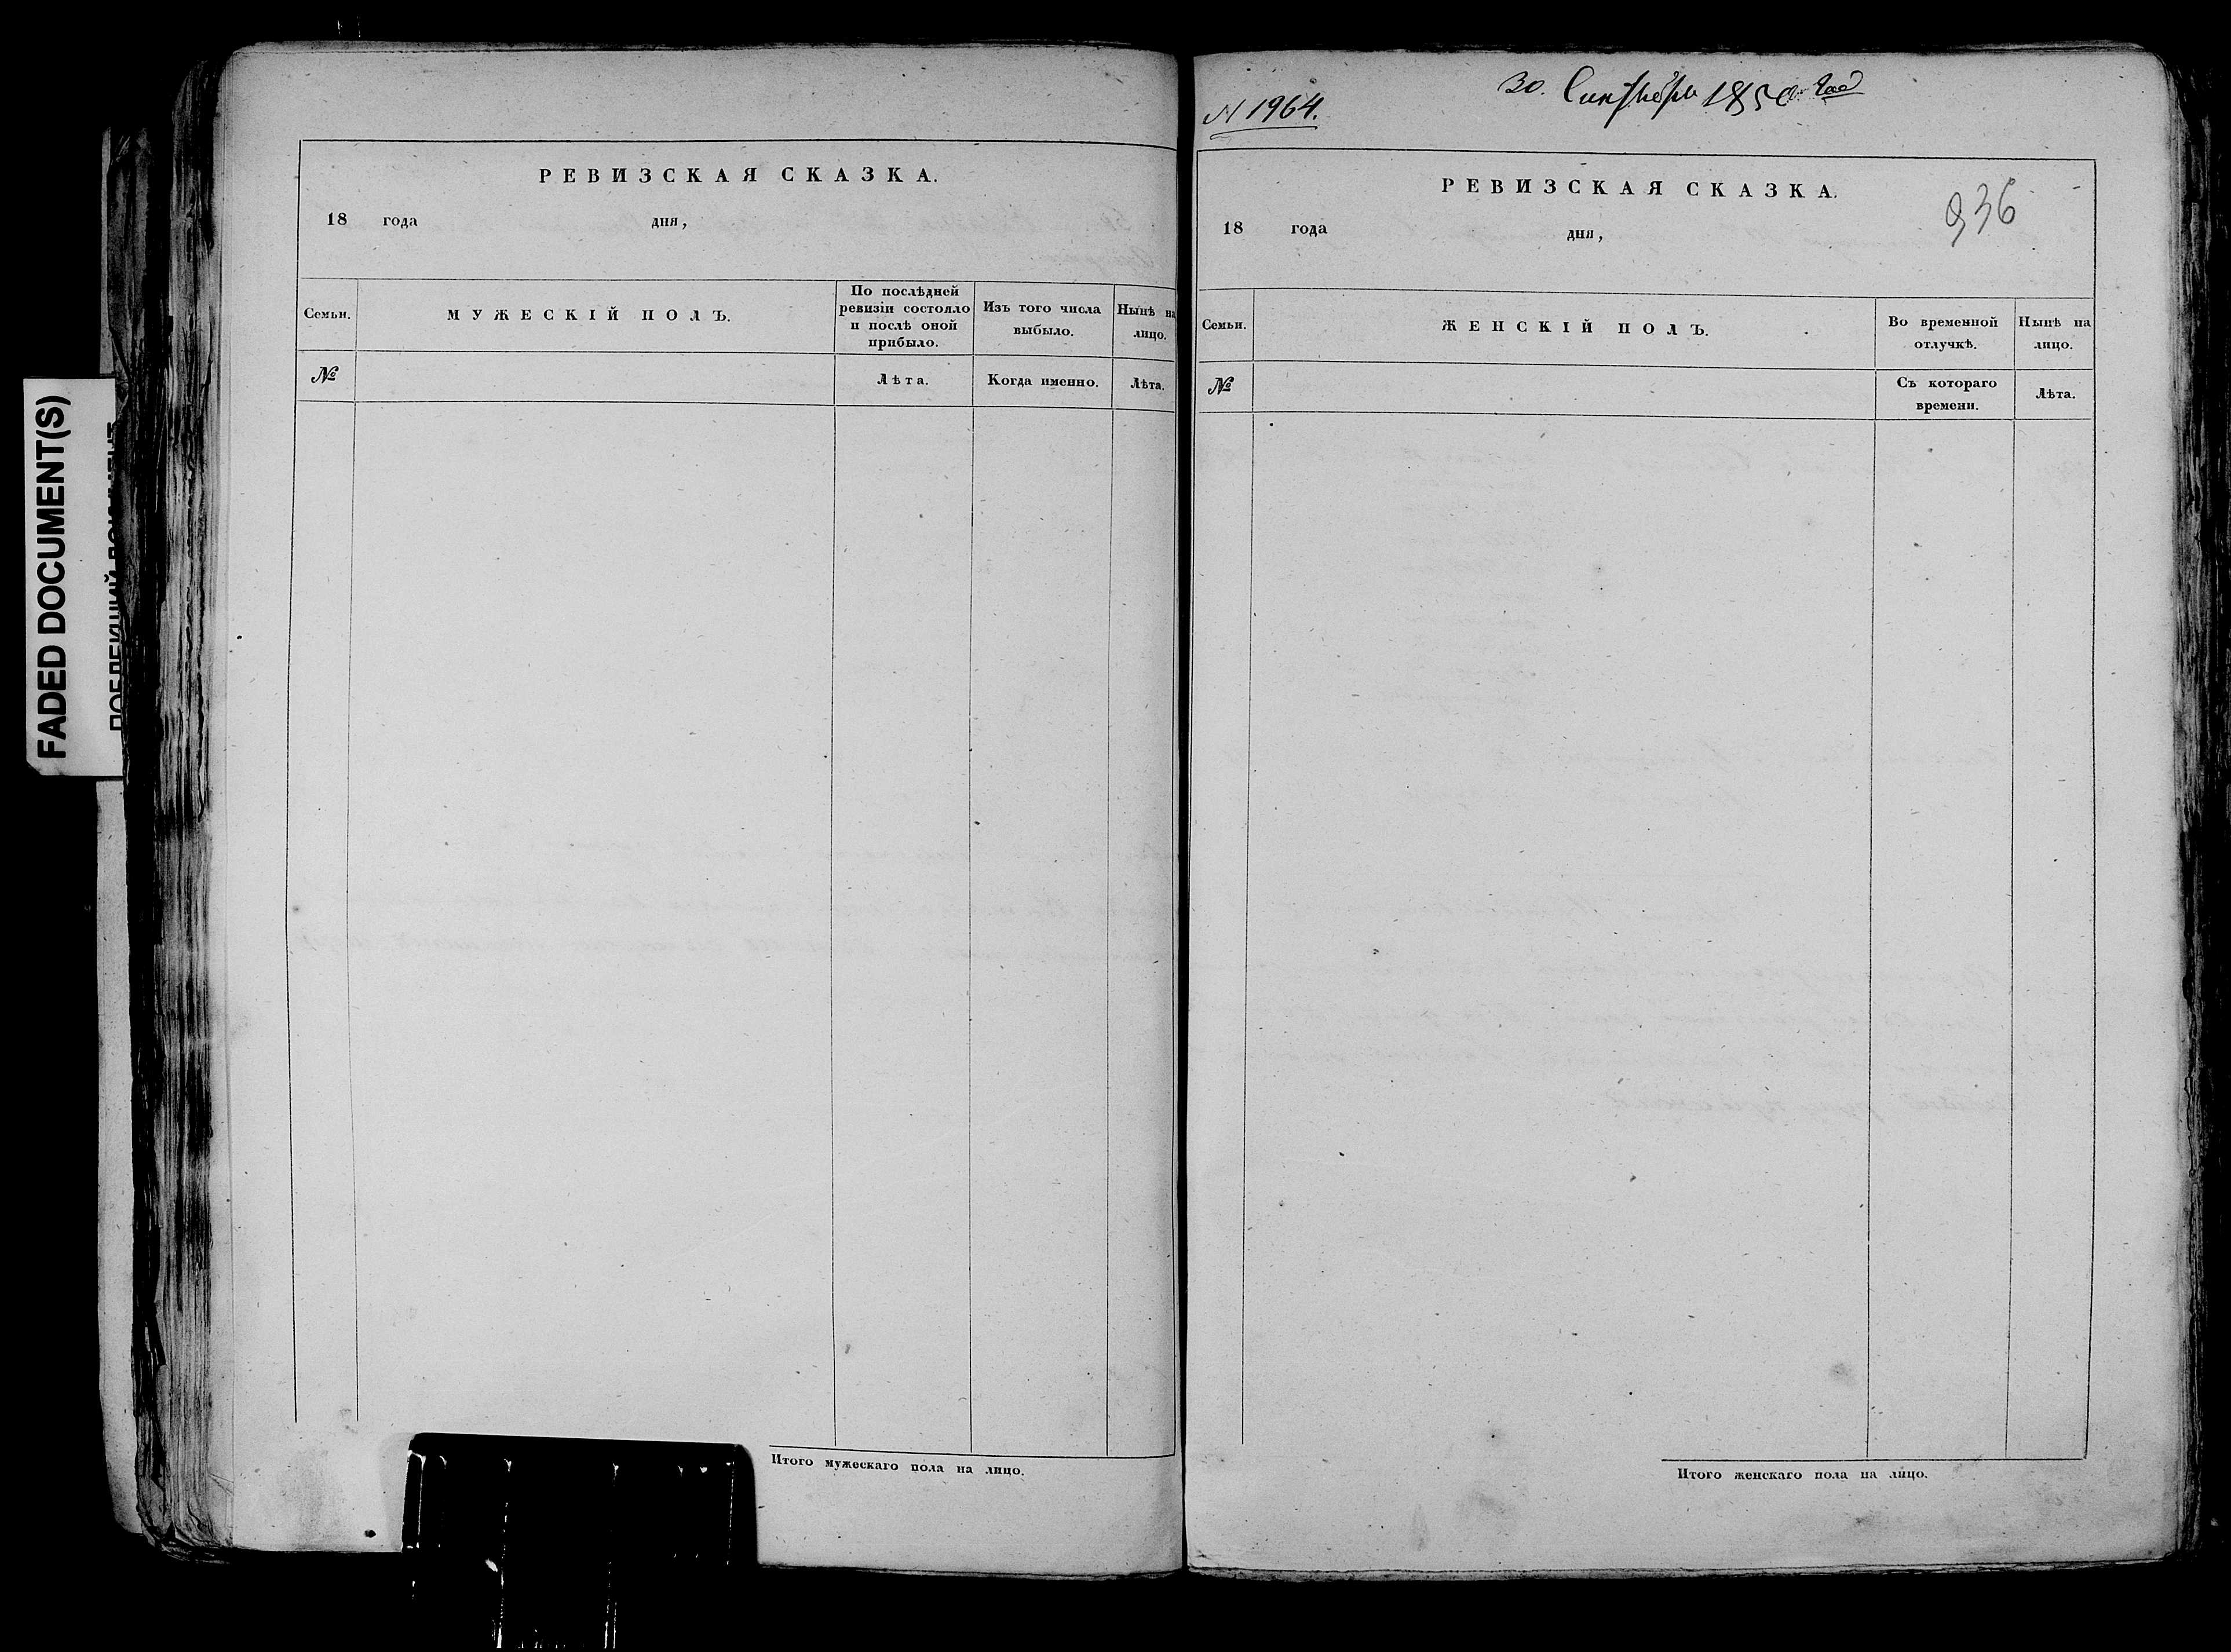 FADED DOCUMENT(S)
РЕВИЗСКАЯ СКАЗКА.
18 года дня,
Семьи.
МУЖЕСКІЙ ПОЛЪ.
По послѣдней
ревизіи состояло
и послѣ оной
прибыло.
Изъ того числа
выбыло.
Нынѣ на
лицо.
№
Лѣта.
Когда именно.
Лѣта.
Итого мужескаго пола на лицо.
30. Сентября 1850 год
N 1964.
РЕВИЗСКАЯ СКАЗКА.
936
18 года дня,
Семьи.
ЖЕНСКІЙ ПОЛЪ.
Во временной
отлучкѣ.
Нынѣ на
лицо.
№
Съ котораго
времени.
Лѣта.
Итого женскаго пола на лицо.